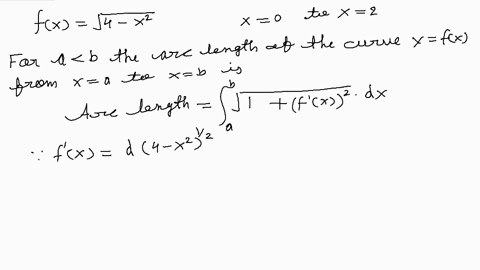 f(x) = √4 − x² x = 0 to x = 2
For a < b the arc length of the curve y = f(x)
from x = a to x = b is
Arc length = ∫ₐᵇ √1 + (f'(x))² · dx
∵ f'(x) = d (4 − x²)^1/2